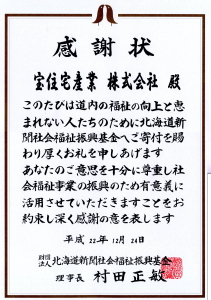 感謝状
宝住宅産業 株式会社 殿
このたびは道内の福祉の向上と恵
まれない人たちのために北海道新
聞社会福祉振興基金へご寄付を賜
わり厚くお礼を申しあげます
あなたのご意思を十分に尊重し社
会福祉事業の振興のため有意義に
活用させていただきますことをお
約束し深く感謝の意を表します
平成 22年 12月 24日
財団法人 北海道新聞社会福祉振興基金
理事長 村田正敏